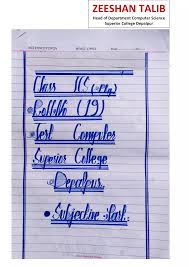 ZEESHAN TALIB
Head of Department Computer Science
Superior College Depalpur
Class ICS
Roll No (19)
Test Computer
Superior College
Depalpur
Subjective Part